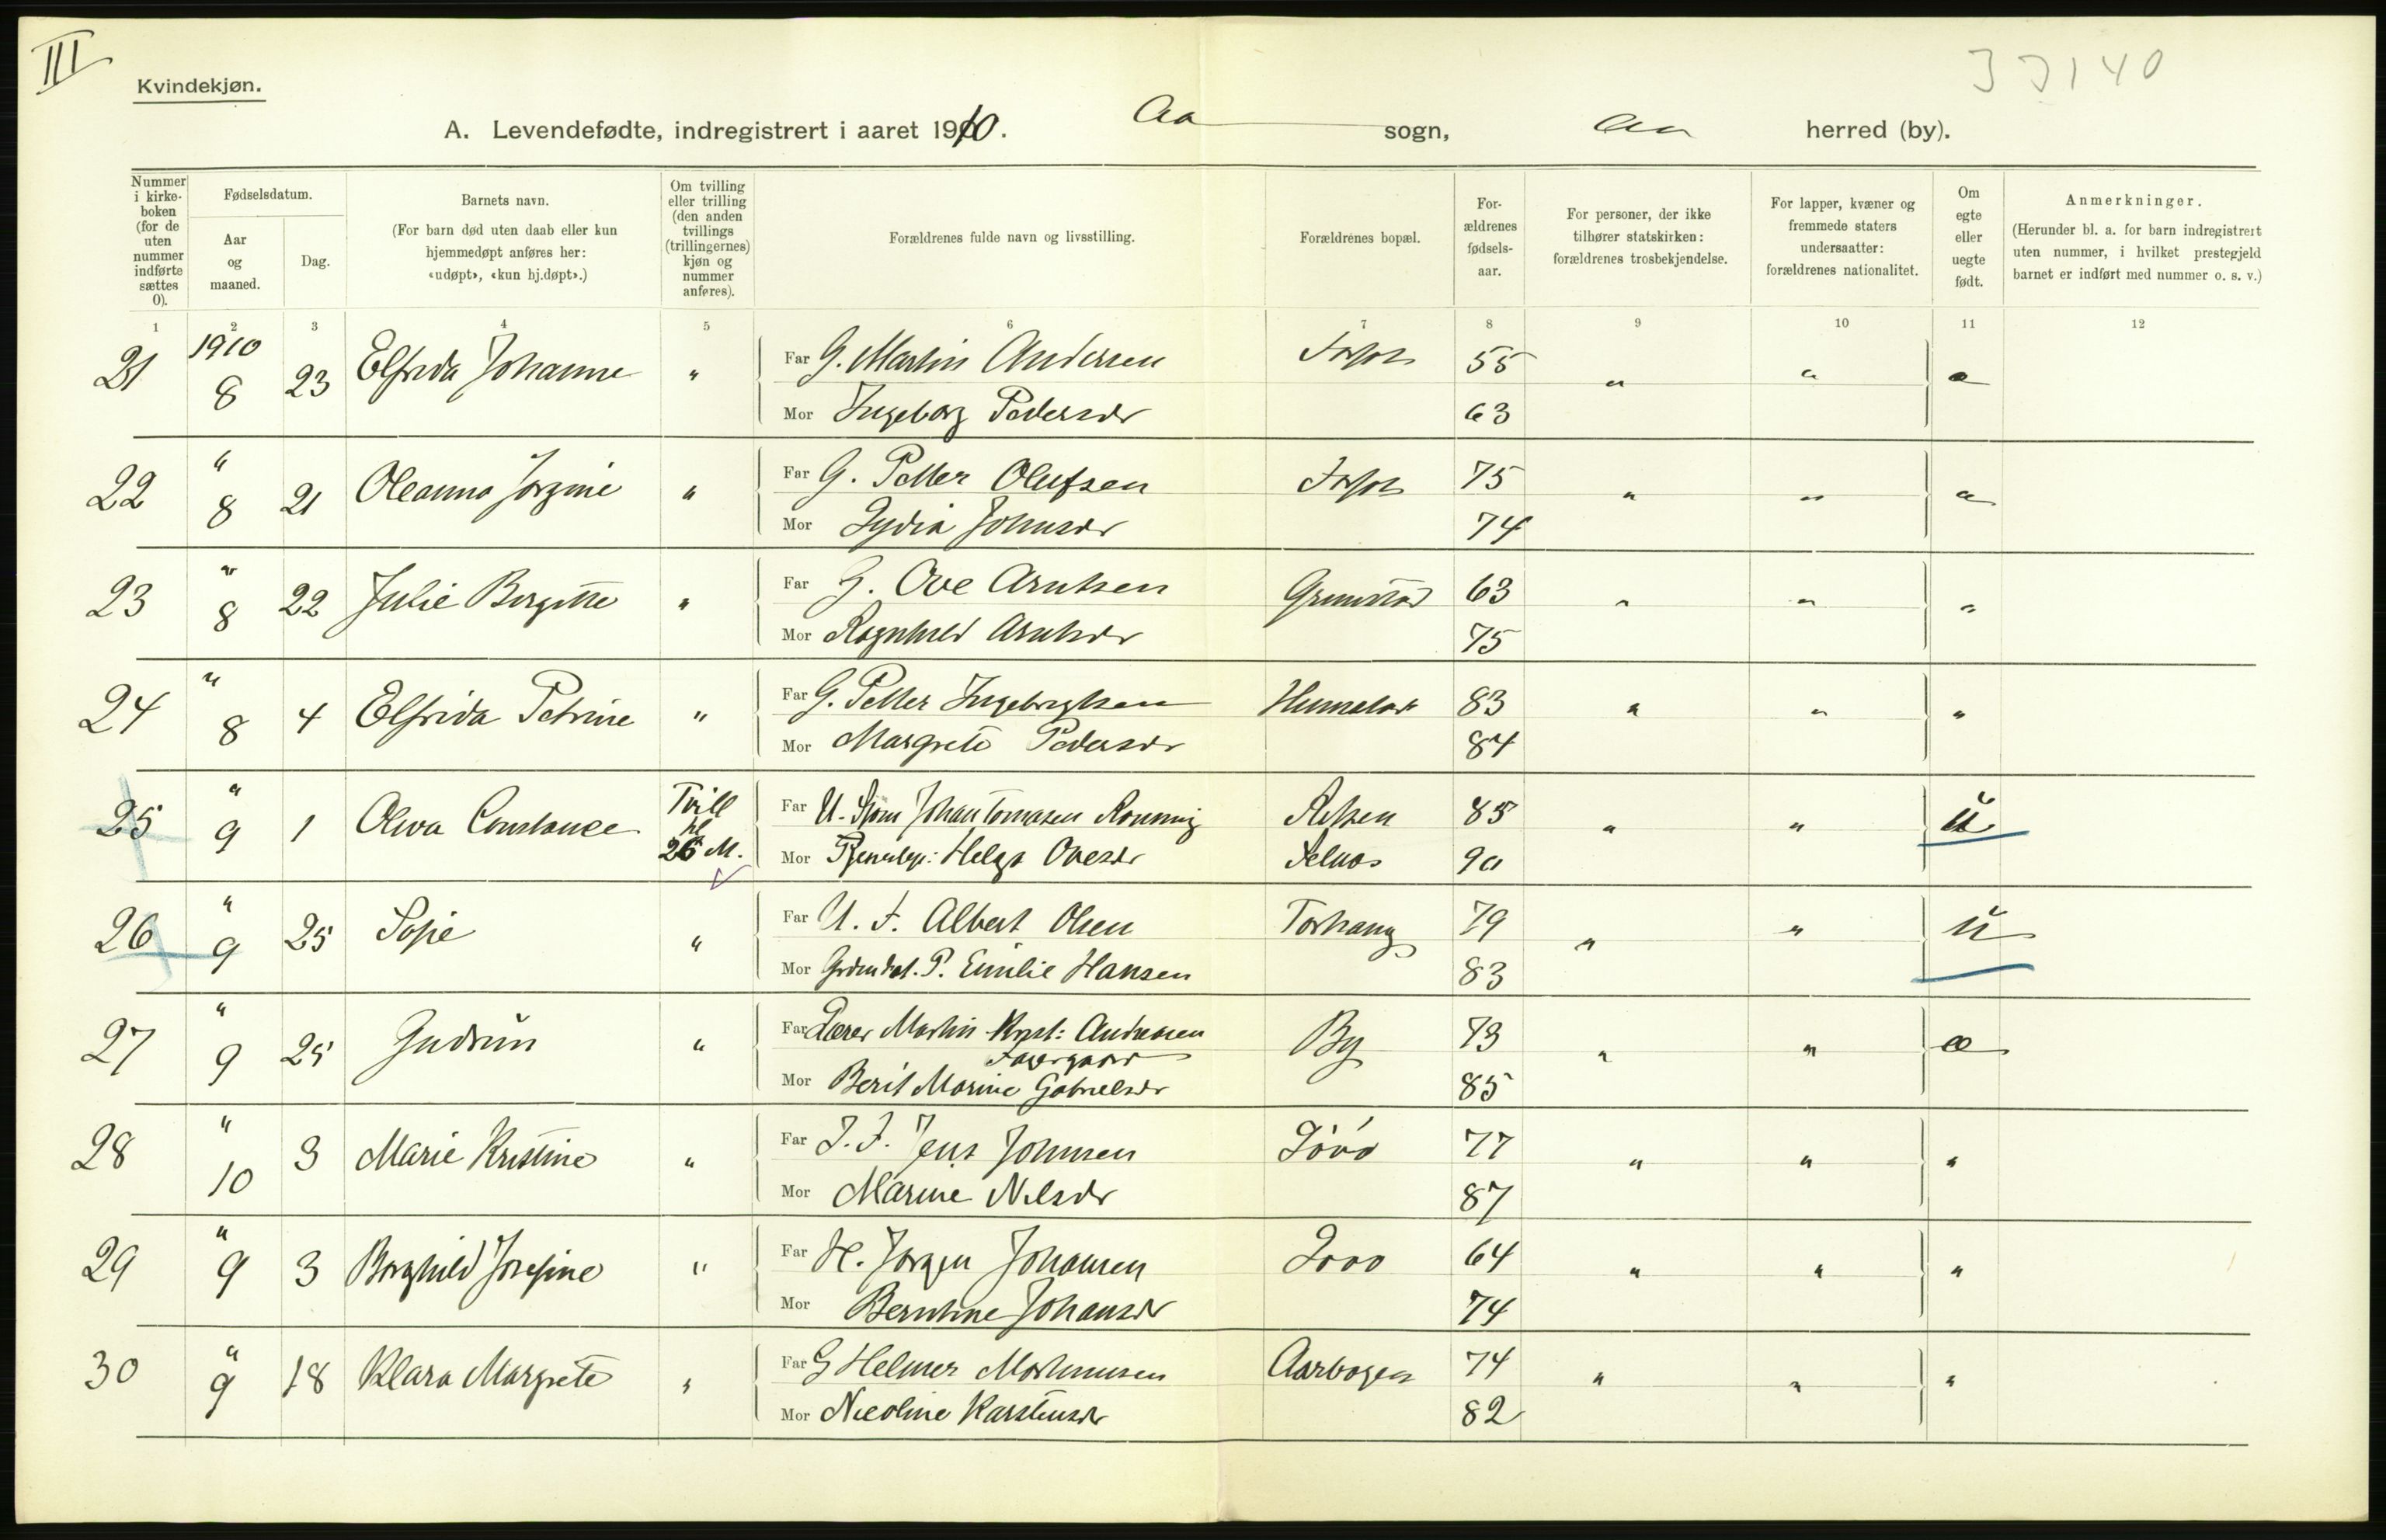 III
Kvindekjøn.
33140
A. Levendefødte, indregistrert i aaret 1910. Aa sogn, Aa herred (by).
Nummer i kirke-boken (for de uten nummer indførte sættes 0).
Fødselsdatum.
Aar og maaned.
Dag.
Barnets navn.
(For barn død uten daab eller kun hjemmedøpt anføres her: «udøpt», «kun hj.døpt».)
Om tvilling eller trilling (den anden tvillings (trillingernes) kjøn og nummer anføres).
Forældrenes fulde navn og livsstilling.
Forældrenes bopæl.
For-ældrenes fødsels-aar.
For personer, der ikke tilhører statskirken: forældrenes trosbekjendelse.
For lapper, kvæner og fremmede staters undersaatter: forældrenes nationalitet.
Om egte eller uegte født.
Anmerkninger.
(Herunder bl. a. for barn indregistrert uten nummer, i hvilket prestegjeld barnet er indført med nummer o. s. v.)
1 2 3 4 5 6 7 8 9 10 11 12
21 1910 8 23 Elfrida Johanne " Far G. Martin Andersen 55 " " æ
Mor Ingeborg Pedersdr 63
22 " 8 21 Oleanna Jørgine " Far G. Petter Olufsen 75 " " æ
Mor Lydia Johnsdr 74
23 " 8 22 Julie Bergitte " Far G. Ove Arntsen Grunstad 63 " " "
Mor Ragnhild Arntsdr 75
24 " 8 4 Elfrida Petrine " Far G. Petter Ingebrigtsen 83 " " "
Mor Margrete Pedersdr 84
25 " 9 1 Olva Constance Tvill til 26 M. Far U. Johan Tomasen Rønning 85 " " u
Mor Helga Ovesdr 90
26 " 9 25 Sofie " Far U. F. Albert Olsen Torhaug 79 " " u
Mor P. Emilie Hansen 83
27 " 9 25 Gudrun " Far Lærer Martin Krist: Andreasen By 73 " " æ
Fagergaard
Mor Berit Marine Gabrielsdr 85
28 " 10 3 Marie Kristine " Far J. F. Jens Johnsen 77 " " "
Mor Marine Nilsdr 87
29 " 9 3 Borghild Josefine " Far H. Jørgen Johansen 64 " " "
Mor Berntine Johansdr 74
30 " 9 18 Klara Margrete " Far G Helmer Mortensen Aarbogen 74 " " "
Mor Nicoline Karstensdr 82